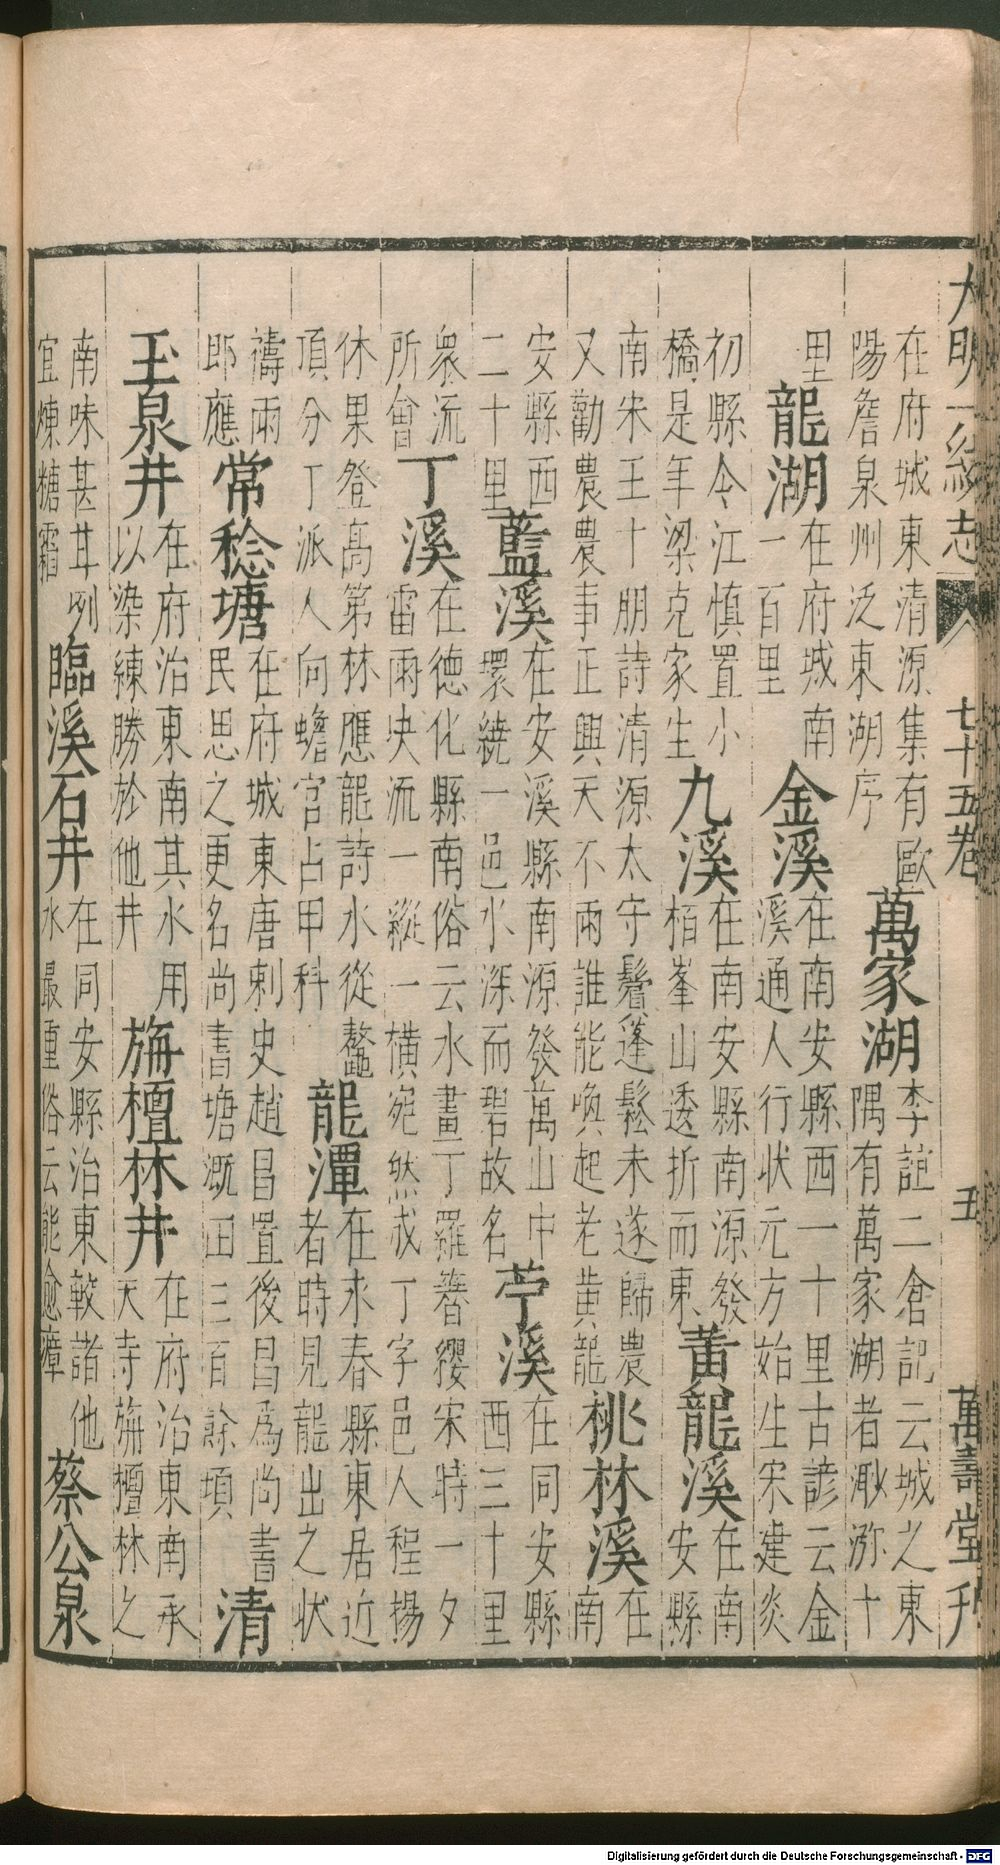 大明一統志 七十五卷 五 萬壽堂刋
在府城東清源集有歐
陽詹泉州泛東湖序
萬家湖
李誼二倉記云城之東
隅有萬家湖者渺瀰十
里
龍湖
在府城南
一百里
金溪
在南安縣西一十里古諺云金
溪通人行狀元方始生宋建炎
初縣令江慎置小
橋是年梁克家生
九溪
在南安縣南源發
栢峯山逶折而東
黃龍溪
在南
安縣
南宋王十朋詩清源太守鬢蓬鬆未遂歸農
又勸農農事正興天不雨誰能喚起老黃龍
桃林溪
在
南
安縣西
二十里
藍溪
在安溪縣南源發萬山中
環繞一邑水深而碧故名
苧溪
在同安縣
西三十里
衆流
所會
丁溪
在德化縣南俗云水畫丁羅簪纓宋時一夕
雷雨決流一縱一橫宛然成丁字邑人程揚
休果登高第林應龍詩水從鼇
項分丁派人向蟾宮占甲科
龍潭
在永春縣東居近
者時見龍出之狀
禱雨
即應
常稔塘
在府城東唐刺史趙昌置後昌為尚書
民思之更名尚書塘溉田三百餘頃
清
玉泉井
在府治東南其水用
以染練勝於他井
旃檀林井
在府治東南承
天寺旃檀林之
南味甚甘冽
宜煉糖霜
臨溪石井
在同安縣治東較諸他
水最重俗云能愈瘴
蔡公泉
Digitalisierung gefördert durch die Deutsche Forschungsgemeinschaft - DFG